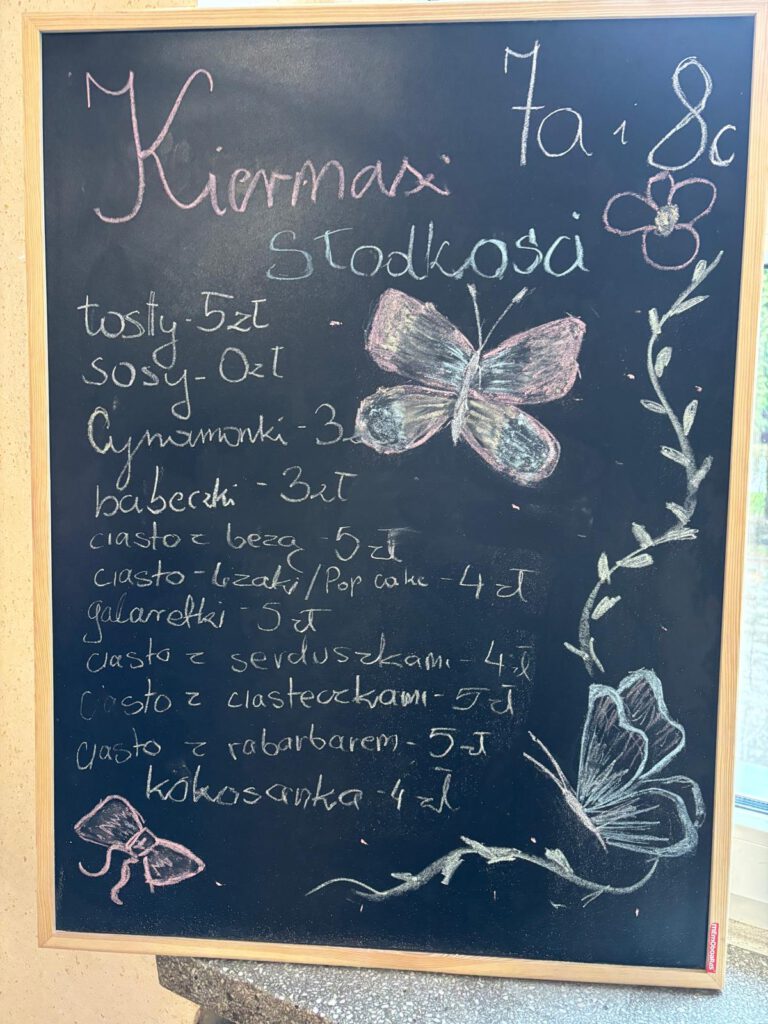 7a i 8c
Kiermasz
Słodkości
tosty - 5zł
sosy - 0zł
Cynamonki - 3
babeczki - 3zł
ciasto z bezą - 5 zł
ciasto - lizaki / Pop cake - 4 zł
galaretki - 5 zł
ciasto z serduszkami - 4 zł
ciasto z ciasteczkami - 5 zł
ciasto z rabarbarem - 5 zł
kokosanka - 4 zł